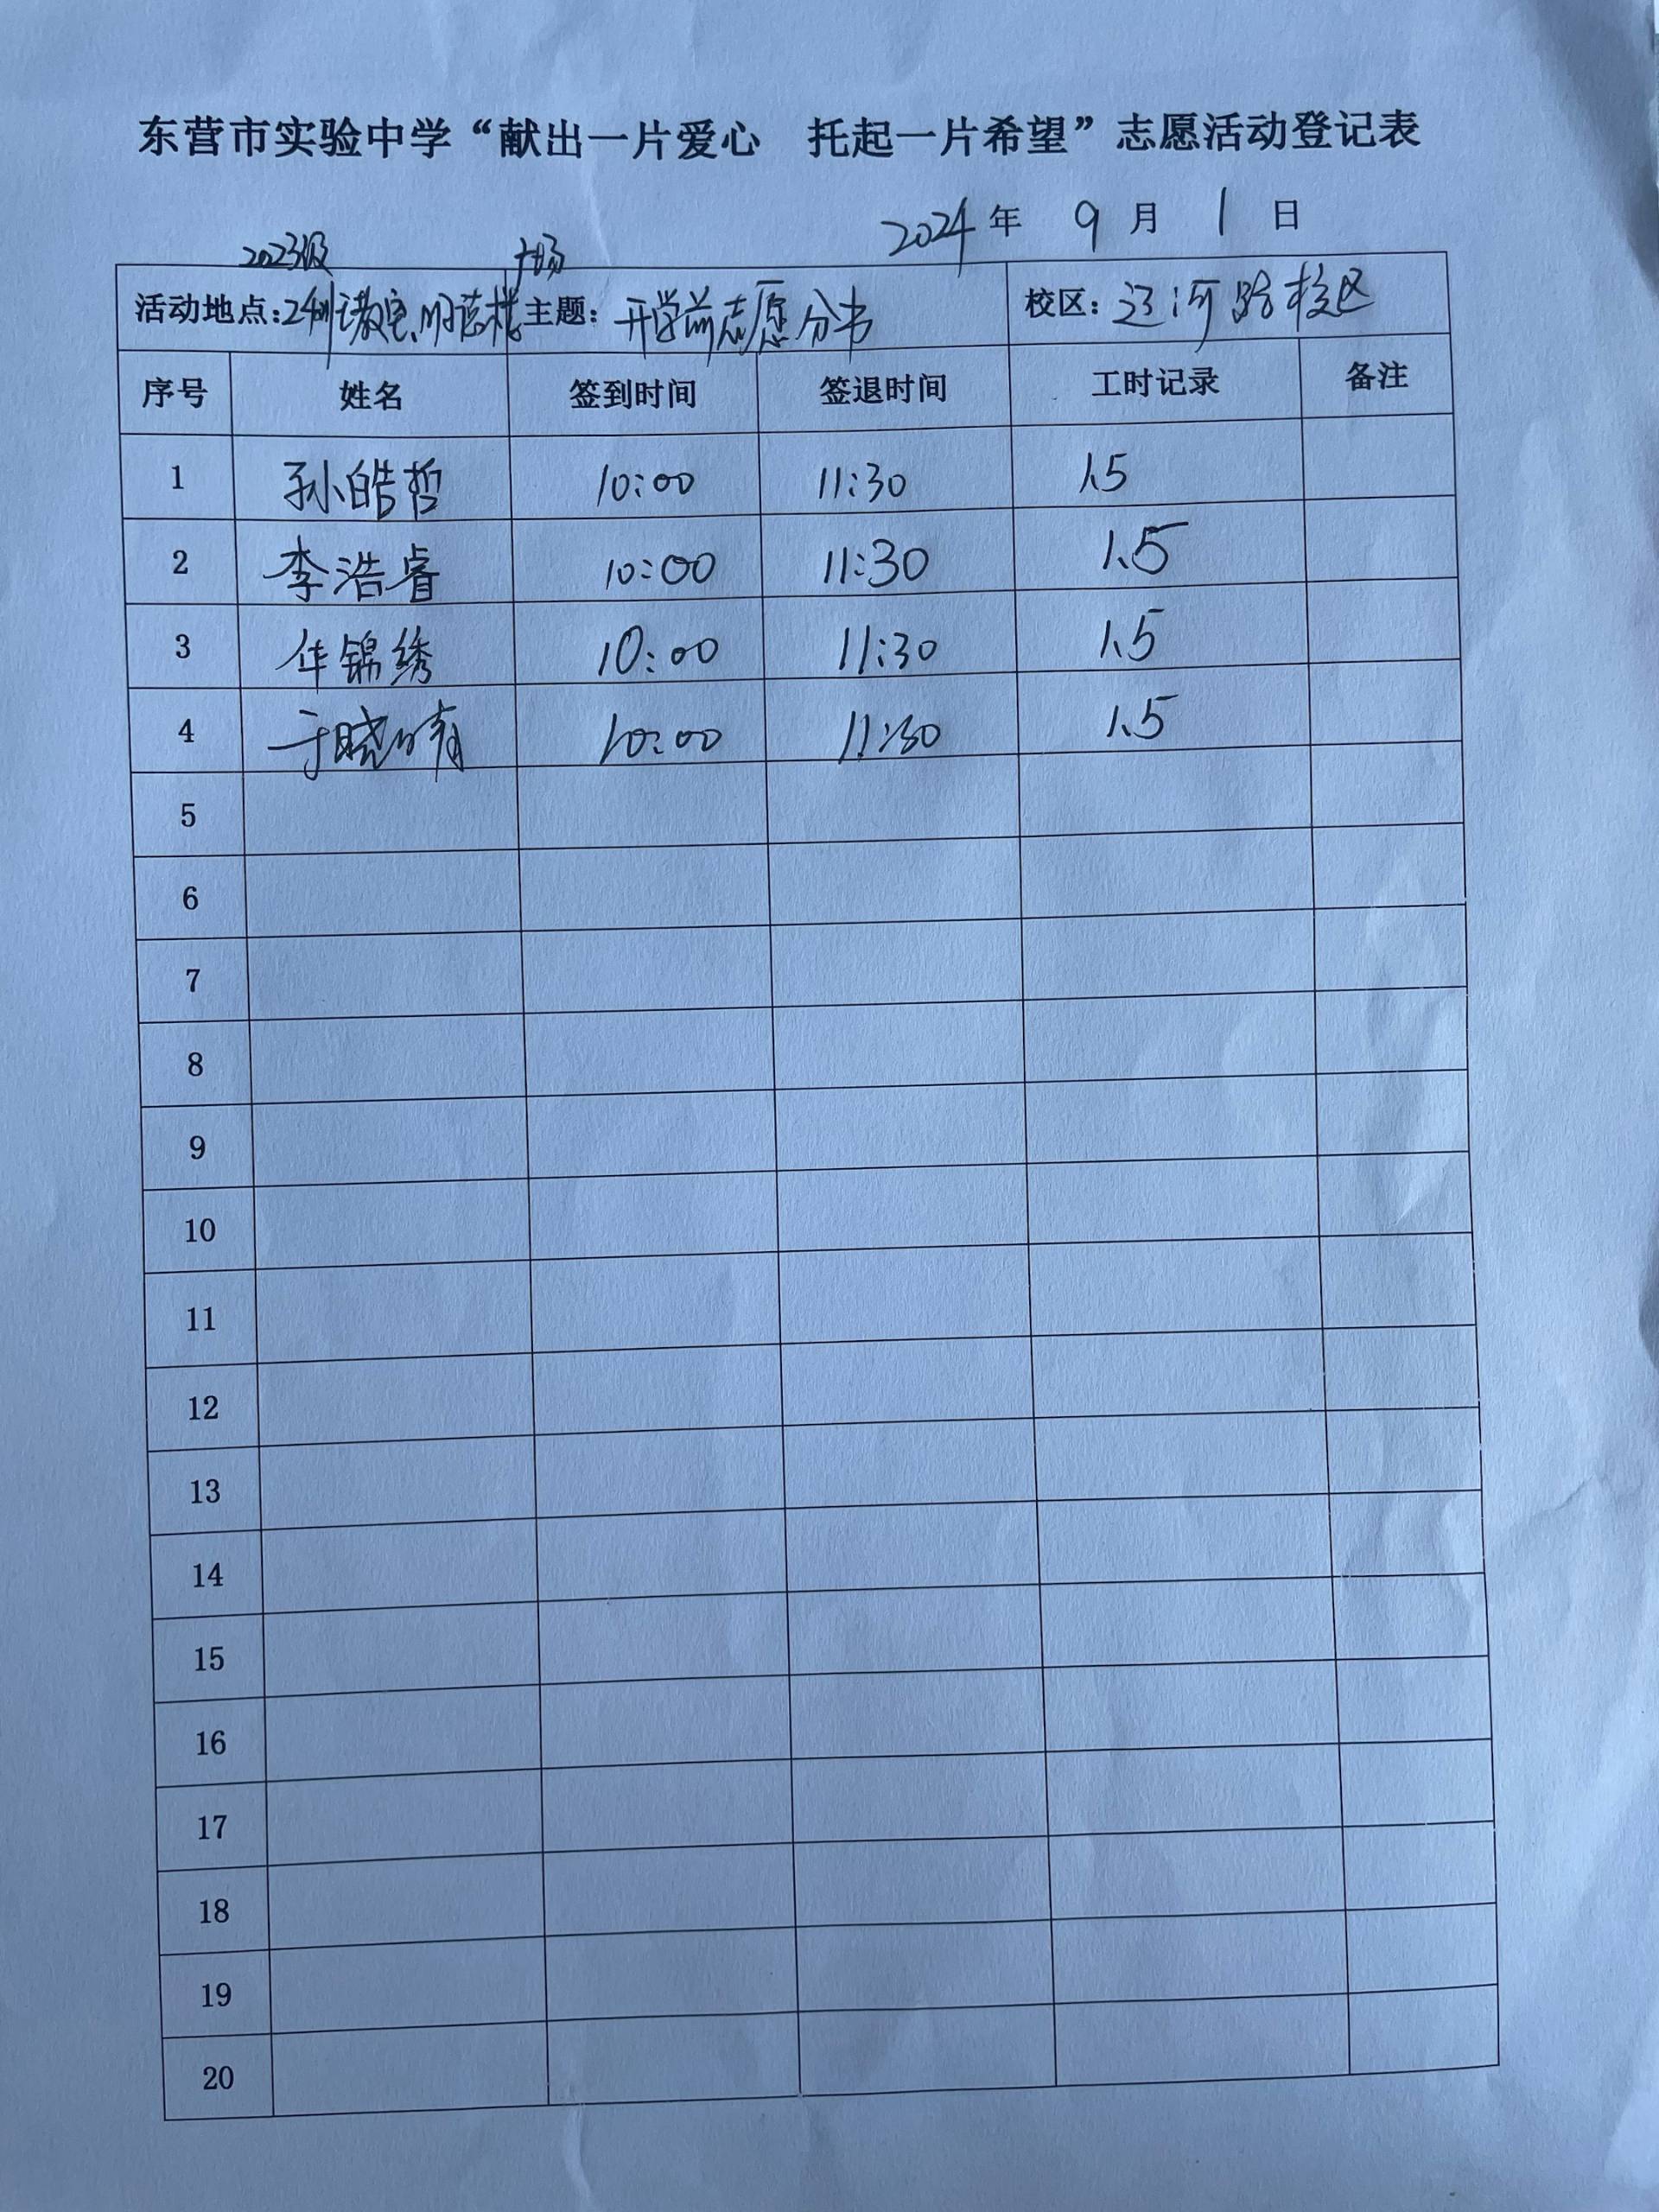 东营市实验中学“献出一片爱心 托起一片希望”志愿活动登记表
2024 年 9 月 1 日
2023级 广场
活动地点: 教室、明志楼 主题: 开学前志愿分书 校区: 辽河路校区
序号 姓名 签到时间 签退时间 工时记录 备注
1 孙皓哲 10:00 11:30 1.5
2 李浩睿 10:00 11:30 1.5
3 锦绣 10:00 11:30 1.5
4 于晓晴 10:00 11:30 1.5
5
6
7
8
9
10
11
12
13
14
15
16
17
18
19
20